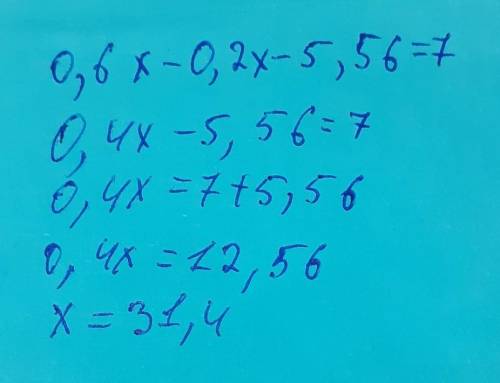 0,6x-0,2x-5,56=7
0,4x-5,56=7
0,4x=7+5,56
0,4x=12,56
x=31,4